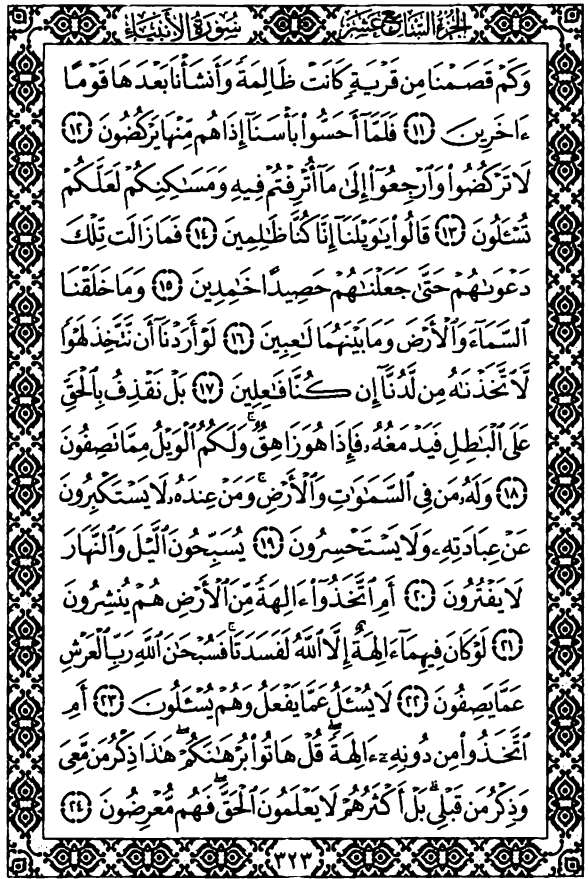 الجزء السابع عشر سورة الأنبياء
وَكَمْ قَصَمْنَا مِن قَرْيَةٍ كَانَتْ ظَالِمَةً وَأَنشَأْنَا بَعْدَهَا قَوْمًا
ءَاخَرِينَ ١١ فَلَمَّآ أَحَسُّوا۟ بَأْسَنَآ إِذَا هُم مِّنْهَا يَرْكُضُونَ ١٢
لَا تَرْكُضُوا۟ وَٱرْجِعُوٓا۟ إِلَىٰ مَآ أُتْرِفْتُمْ فِيهِ وَمَسَٰكِنِكُمْ لَعَلَّكُمْ
تُسْـَٔلُونَ ١٣ قَالُوا۟ يَٰوَيْلَنَآ إِنَّا كُنَّا ظَٰلِمِينَ ١٤ فَمَا زَالَت تِّلْكَ
دَعْوَىٰهُمْ حَتَّىٰ جَعَلْنَٰهُمْ حَصِيدًا خَٰمِدِينَ ١٥ وَمَا خَلَقْنَا
ٱلسَّمَآءَ وَٱلْأَرْضَ وَمَا بَيْنَهُمَا لَٰعِبِينَ ١٦ لَوْ أَرَدْنَآ أَن نَّتَّخِذَ لَهْوًا
لَّٱتَّخَذْنَٰهُ مِن لَّدُنَّآ إِن كُنَّا فَٰعِلِينَ ١٧ بَلْ نَقْذِفُ بِٱلْحَقِّ
عَلَى ٱلْبَٰطِلِ فَيَدْمَغُهُۥ فَإِذَا هُوَ زَاهِقٌ ۚ وَلَكُمُ ٱلْوَيْلُ مِمَّا تَصِفُونَ
١٨ وَلَهُۥ مَن فِى ٱلسَّمَٰوَٰتِ وَٱلْأَرْضِ ۚ وَمَنْ عِندَهُۥ لَا يَسْتَكْبِرُونَ
عَنْ عِبَادَتِهِۦ وَلَا يَسْتَحْسِرُونَ ١٩ يُسَبِّحُونَ ٱلَّيْلَ وَٱلنَّهَارَ
لَا يَفْتُرُونَ ٢٠ أَمِ ٱتَّخَذُوٓا۟ ءَالِهَةً مِّنَ ٱلْأَرْضِ هُمْ يُنشِرُونَ
٢١ لَوْ كَانَ فِيهِمَآ ءَالِهَةٌ إِلَّا ٱللَّهُ لَفَسَدَتَا ۚ فَسُبْحَٰنَ ٱللَّهِ رَبِّ ٱلْعَرْشِ
عَمَّا يَصِفُونَ ٢٢ لَا يُسْـَٔلُ عَمَّا يَفْعَلُ وَهُمْ يُسْـَٔلُونَ ٢٣ أَمِ
ٱتَّخَذُوا۟ مِن دُونِهِۦٓ ءَالِهَةً ۖ قُلْ هَاتُوا۟ بُرْهَٰنَكُمْ ۖ هَٰذَا ذِكْرُ مَن مَّعِىَ
وَذِكْرُ مَن قَبْلِى ۗ بَلْ أَكْثَرُهُمْ لَا يَعْلَمُونَ ٱلْحَقَّ ۖ فَهُم مُّعْرِضُونَ ٢٤
٣٢٣